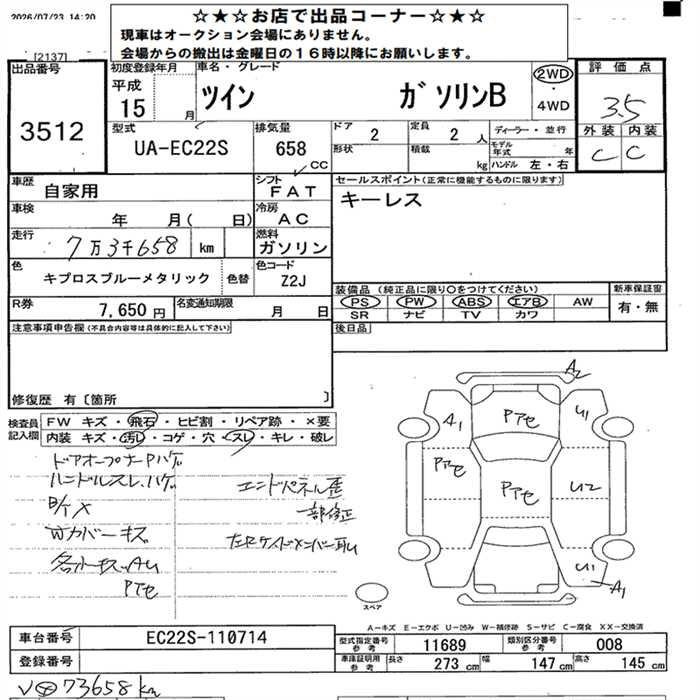 2026/07/23 14:20
☆★☆お店で出品コーナー☆★☆
現車はオークション会場にありません。
会場からの搬出は金曜日の16時以降にお願いします。
[2137]
出品番号
3512
初度登録年月
平成
15 月
車名・グレード
ツイン ガソリンB
2WD
・
4WD
評価点
3.5
外装 内装
C C
型式
UA-EC22S
排気量
658
CC
ドア
2
定員
2 人
ディーラー・並行
モデル年式 年
形状
積載
kg
ハンドル 左・右
車歴
自家用
シフト
FAT
車検
年 月( 日)
冷房
AC
走行
7万3千658 km
燃料
ガソリン
色
キプロスブルーメタリック
色替
色コード
Z2J
R券
7,650 円
名変通知期限
月 日
セールスポイント(正常に機能するものに限ります)
キーレス
装備品 (純正品に限り○をつけてください)
PS PW ABS エアB AW
SR ナビ TV カワ
新車保証書
有・無
後日品
注意事項申告欄(不具合内容等は具体的に記入して下さい)
修復歴 有〔箇所 〕
検査員
記入欄
FW キズ・飛石・ヒビ割・リペア跡・×要
内装 キズ・汚レ・コゲ・穴・スレ・キレ・破レ
ドアオープナーPハゲ
ハンドルスレ、ハゲ
Wカバーキズ
各小キズ、AU
Pアセ
エンドパネル歪
一部修正
A2
A1
Pアセ
U1
Pアセ
Pアセ
U2
U1
A1
スペア
A-キズ E-エクボ U-凹み W-補修跡 S-サビ C-腐食 XX-交換済
車台番号
EC22S-110714
登録番号
型式指定番号
参考
11689
類別区分番号
参考
008
車庫証明用
参考
長さ 273 cm
幅 147 cm
高さ 145 cm
73658km